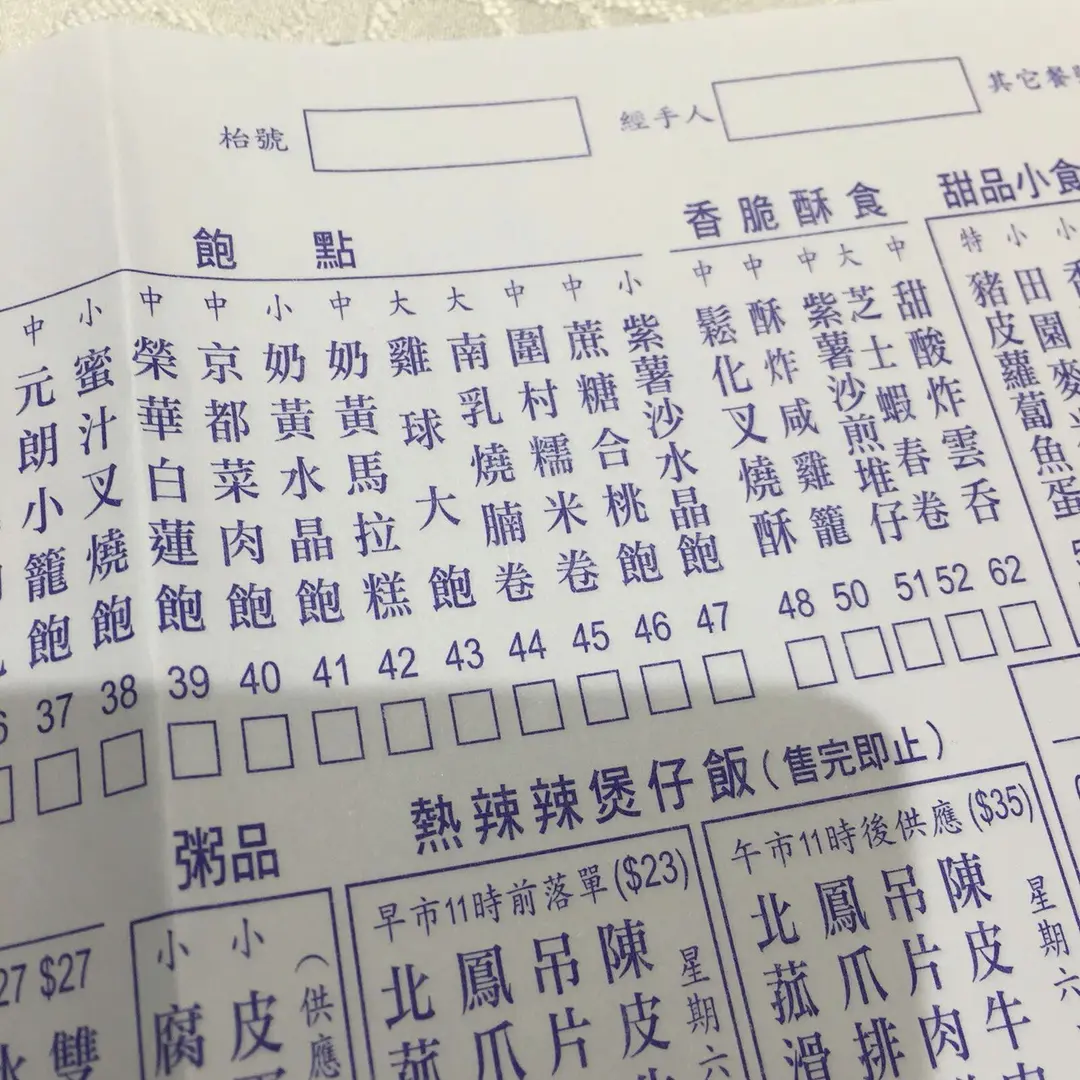 枱號
經手人
其它餐
飽點
中 元朗小籠飽 37
小 蜜汁叉燒飽 38
中 榮華白蓮飽 39
中 京都菜肉飽 40
小 奶黃水晶飽 41
中 奶黃馬拉糕 42
大 雞球大飽 43
大 南乳燒腩卷 44
中 圍村糯米卷 45
中 蔗糖合桃飽 46
小 紫薯沙水晶飽 47
香脆酥食
中 鬆化叉燒酥 48
中 酥炸咸雞籠 50
中 紫薯沙煎堆仔 51
大 芝士蝦春卷 52
中 甜酸炸雲吞 62
甜品小食
特 豬皮蘿蔔魚蛋
小 田園麥
小
$27
雙
粥品
小 腐
小 皮
(供應
熱辣辣煲仔飯(售完即止)
早市11時前落單($23)
北菰
鳳爪
吊片
陳皮
星期六
午市11時後供應($35)
北菰滑
鳳爪排
吊片肉
陳皮牛
星期六